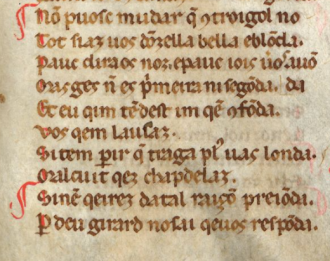 Nō puosc mudar q̄ ꝯtroigol no
Tot siaz uos dōzella bella eblōda.
Pauc dira os noz. epauc iois uos auō
Oras ges n̄ es p̄meira ni segōda. da
Et eu qim tēdest im qē ꝯfōda.
Vos qem lausaz.
Si tem ꝑir q̄ traga pl uas londa.
Oralcuit qez chapdelaz.
Sinē qeirez datal raiçō preiōda.
Ꝑ deu girard no sai qeuos respōda.